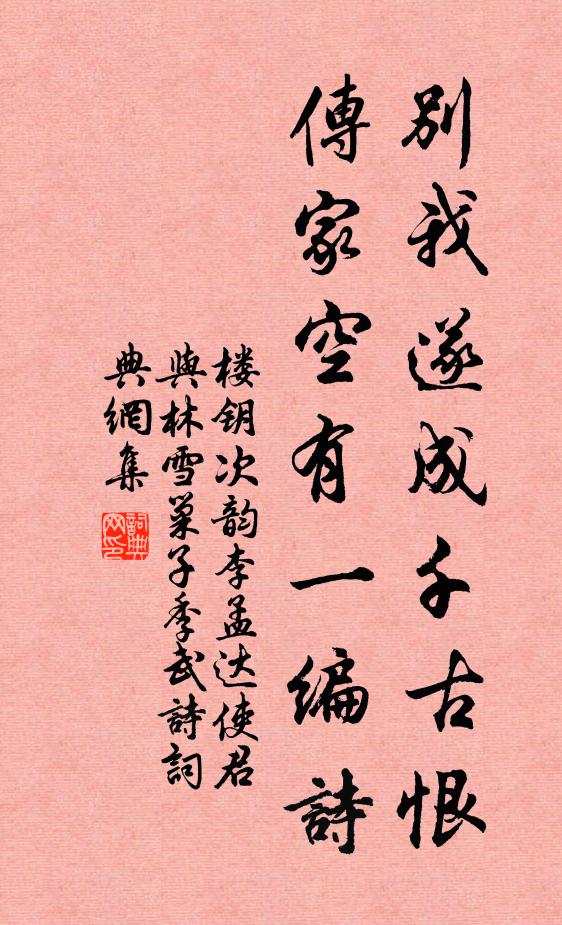 別我遂成千古恨
傳家空有一编詩
楼钥次韵李孟达使君
與林雪巢子季武詩詞
典網集
詞典
网印